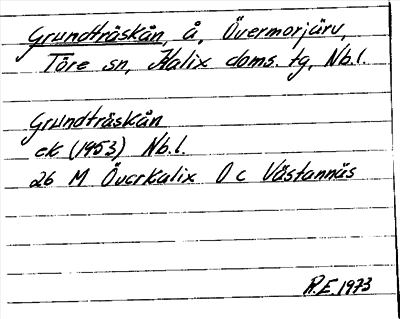 Grundträskån, å, Övermorjärv,
Töre sn, Kalix doms. tg, Nb.l.
Grundträskån
ek (1953) Nb.l.
26 M Överkalix O c Västannäs
R.E. 1973